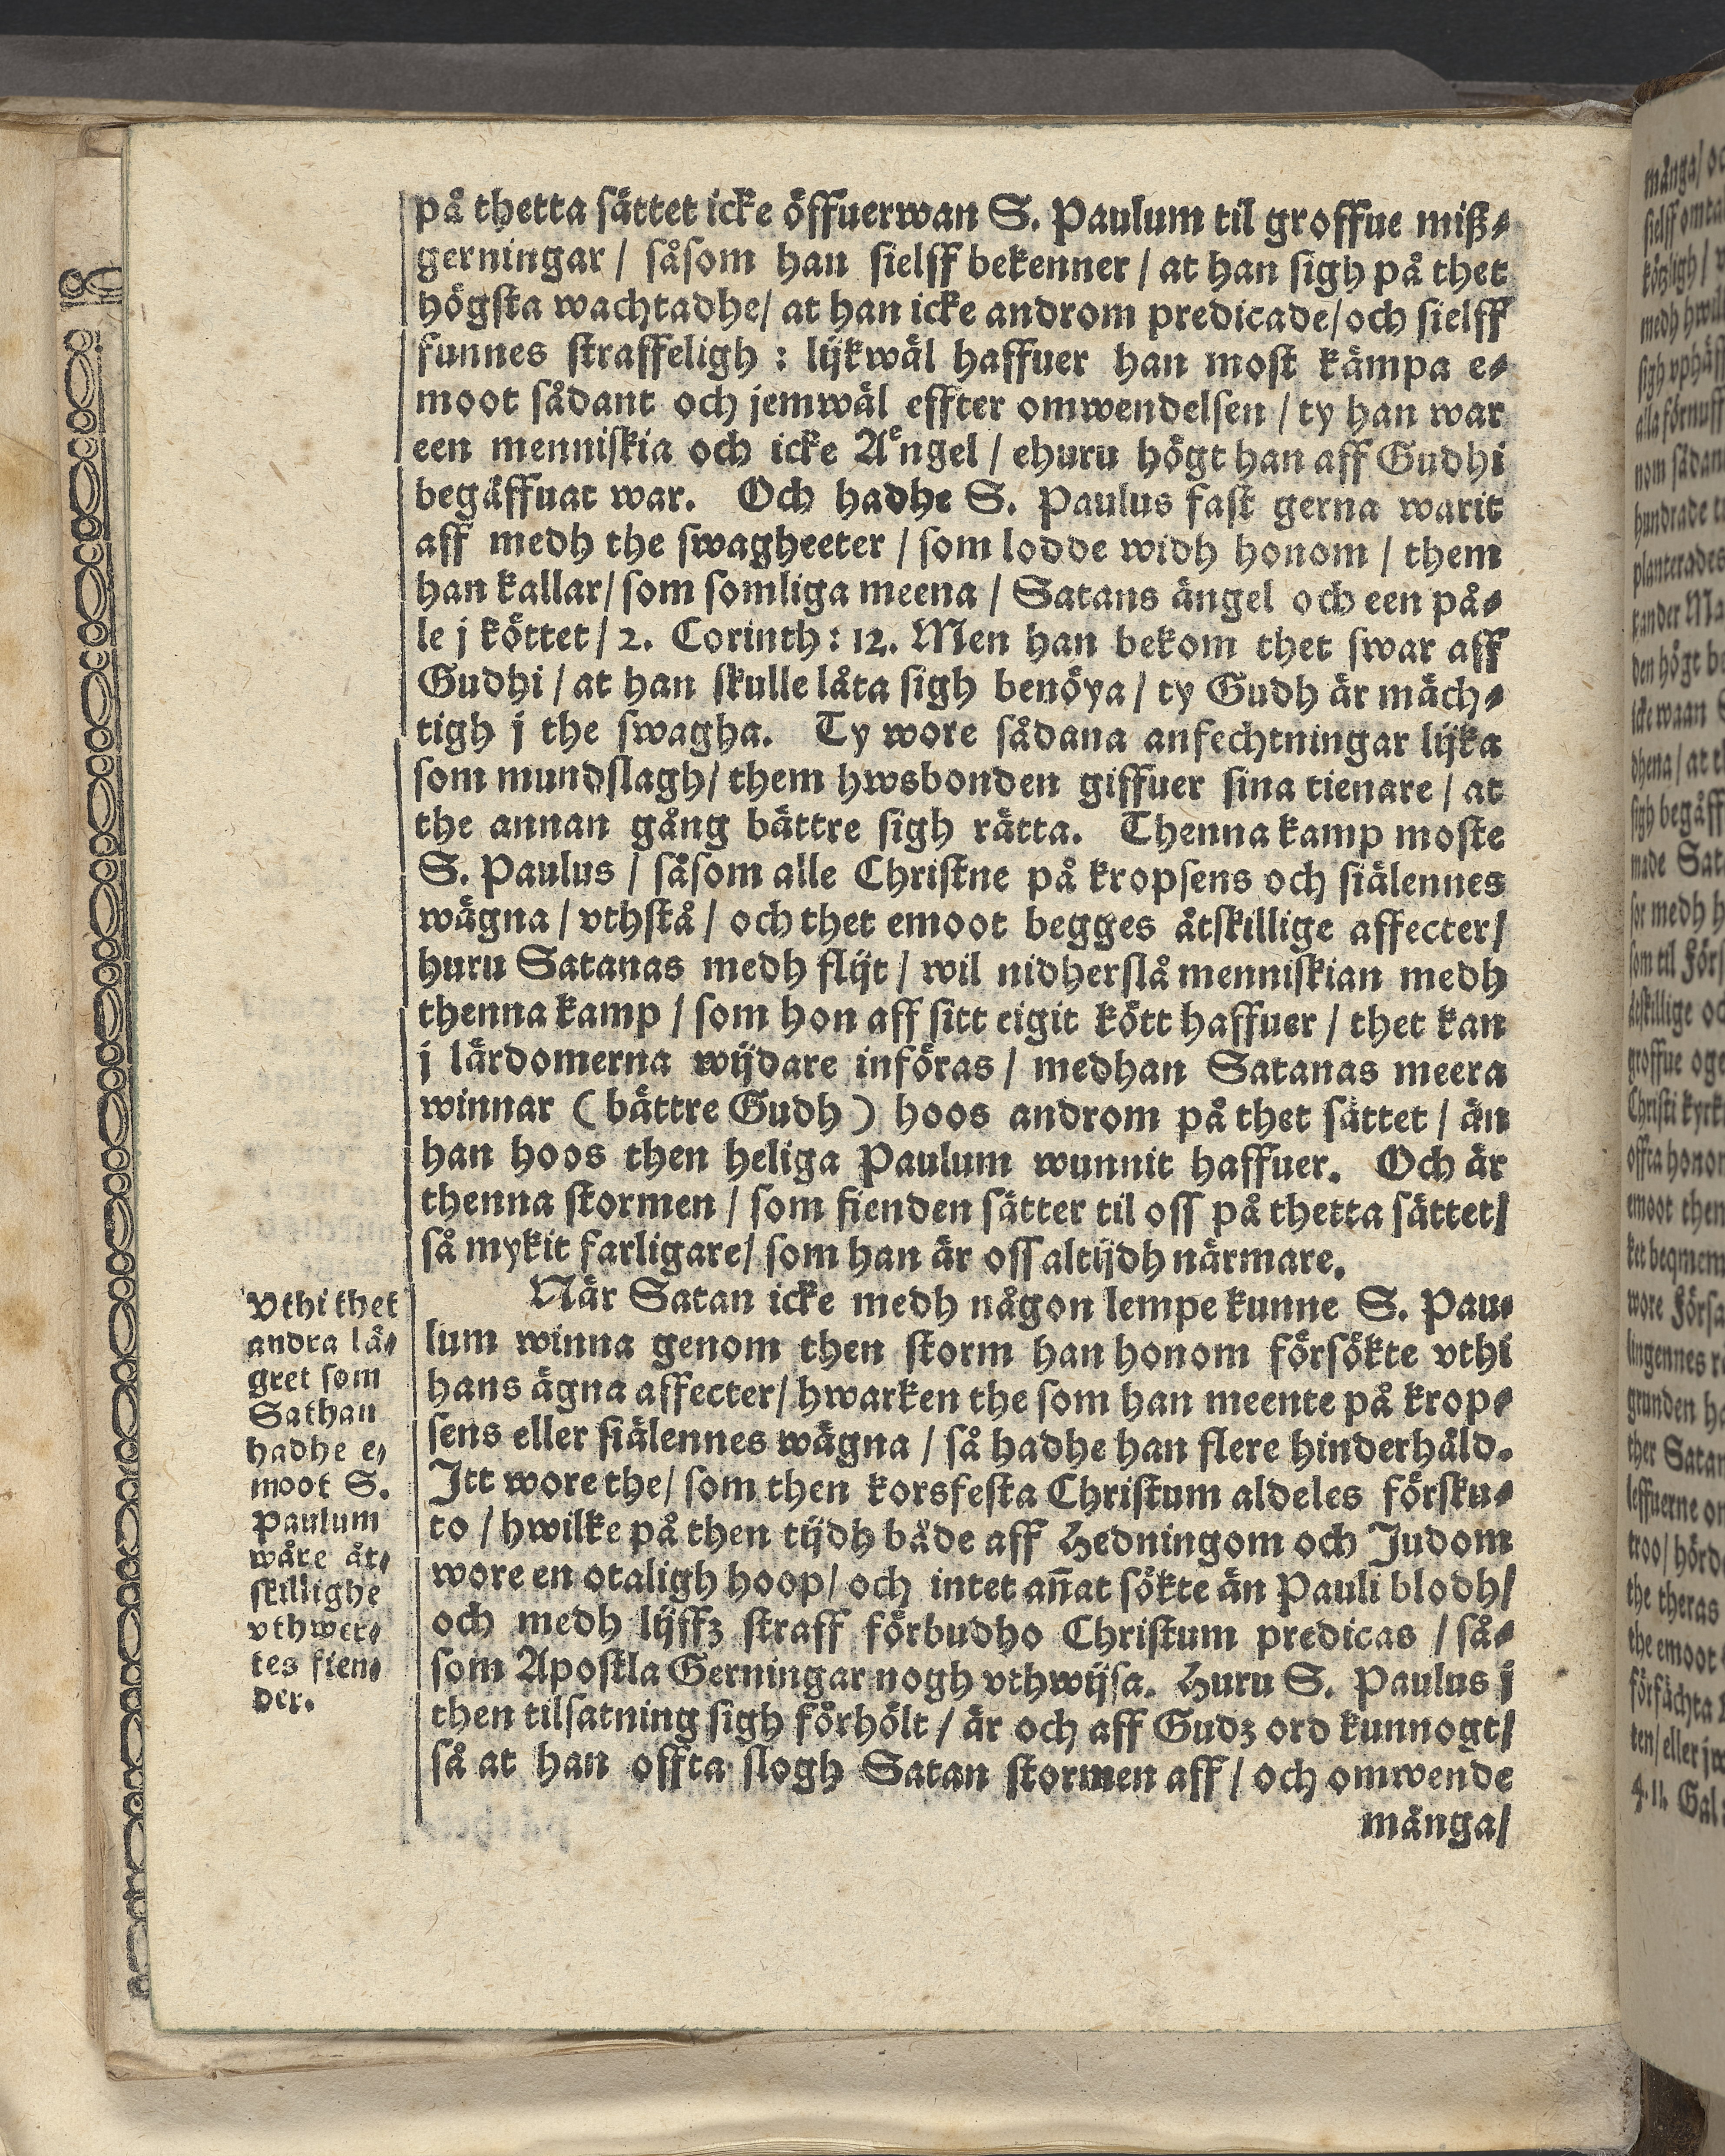 på thetta sättet icke öffuerwan S. Paulum til groffue miß⸗
gerningar / såsom han sielff bekenner / at han sigh på thet
högsta wachtadhe/ at han icke androm predicade/ och sielff
funnes straffeligh : lijkwäl haffuer han most kämpa e⸗
moot sådant och jemwäl effter omwendelsen / ty han war
een menniskia och icke Aͤngel / ehuru högt han aff Gudhi
begåffuat war. Och hadhe S. Paulus fast gerna warit
aff medh the swagheeter / som lodde widh honom / them
han kallar/ som somliga meena / Satans ängel och een på⸗
le j köttet / 2. Corinth : 12. Men han bekom thet swar aff
Gudhi / at han skulle låta sigh benöya / ty Gudh är mäch⸗
tigh j the swagha. Ty wore sådana anfechtningar lijka
som mundslagh/ them hwsbonden giffuer sina tienare / at
the annan gång bättre sigh rätta. Thenna kamp moste
S. Paulus / såsom alle Christne på kropsens och siälennes
wägna / vthstå / och thet emoot begges åtskillige affecter/
huru Satanas medh flijt / wil nidherslå menniskian medh
thenna kamp / som hon aff sitt eigit kött haffuer / thet kan
j lärdomerna wijdare införas / medhan Satanas meera
winnar ( bättre Gudh ) hoos androm på thet sättet / än
han hoos then heliga Paulum wunnit haffuer. Och är
thenna stormen / som fienden sätter til oss på thetta sättet/
så mykit farligare/ som han är oss altijdh närmare.
När Satan icke medh någon lempe kunne S. Pau⸗
lum winna genom then storm han honom försökte vthi
hans ägna affecter/ hwarken the som han meente på krop⸗
sens eller siälennes wägna / så hadhe han flere hinderhåld.
Itt wore the/ som then korsfesta Christum aldeles försku⸗
to / hwilke på then tijdh både aff Hedningom och Judom
wore en otaligh hoop/ och intet an̄at sökte än Pauli blodh/
och medh lijffz straff förbudho Christum predicas / så⸗
som Apostla Gerningar nogh vthwijsa. Huru S. Paulus j
then tilsatning sigh förhölt / är och aff Gudz ord kunnogt/
så at han offta slogh Satan stormen aff / och omwende
många/
Vthi thet
andra lä⸗
gret som
Sathan
hadhe e⸗
moot S.
Paulum
wåre åt⸗
skillighe
vthwer⸗
tes fien⸗
der.